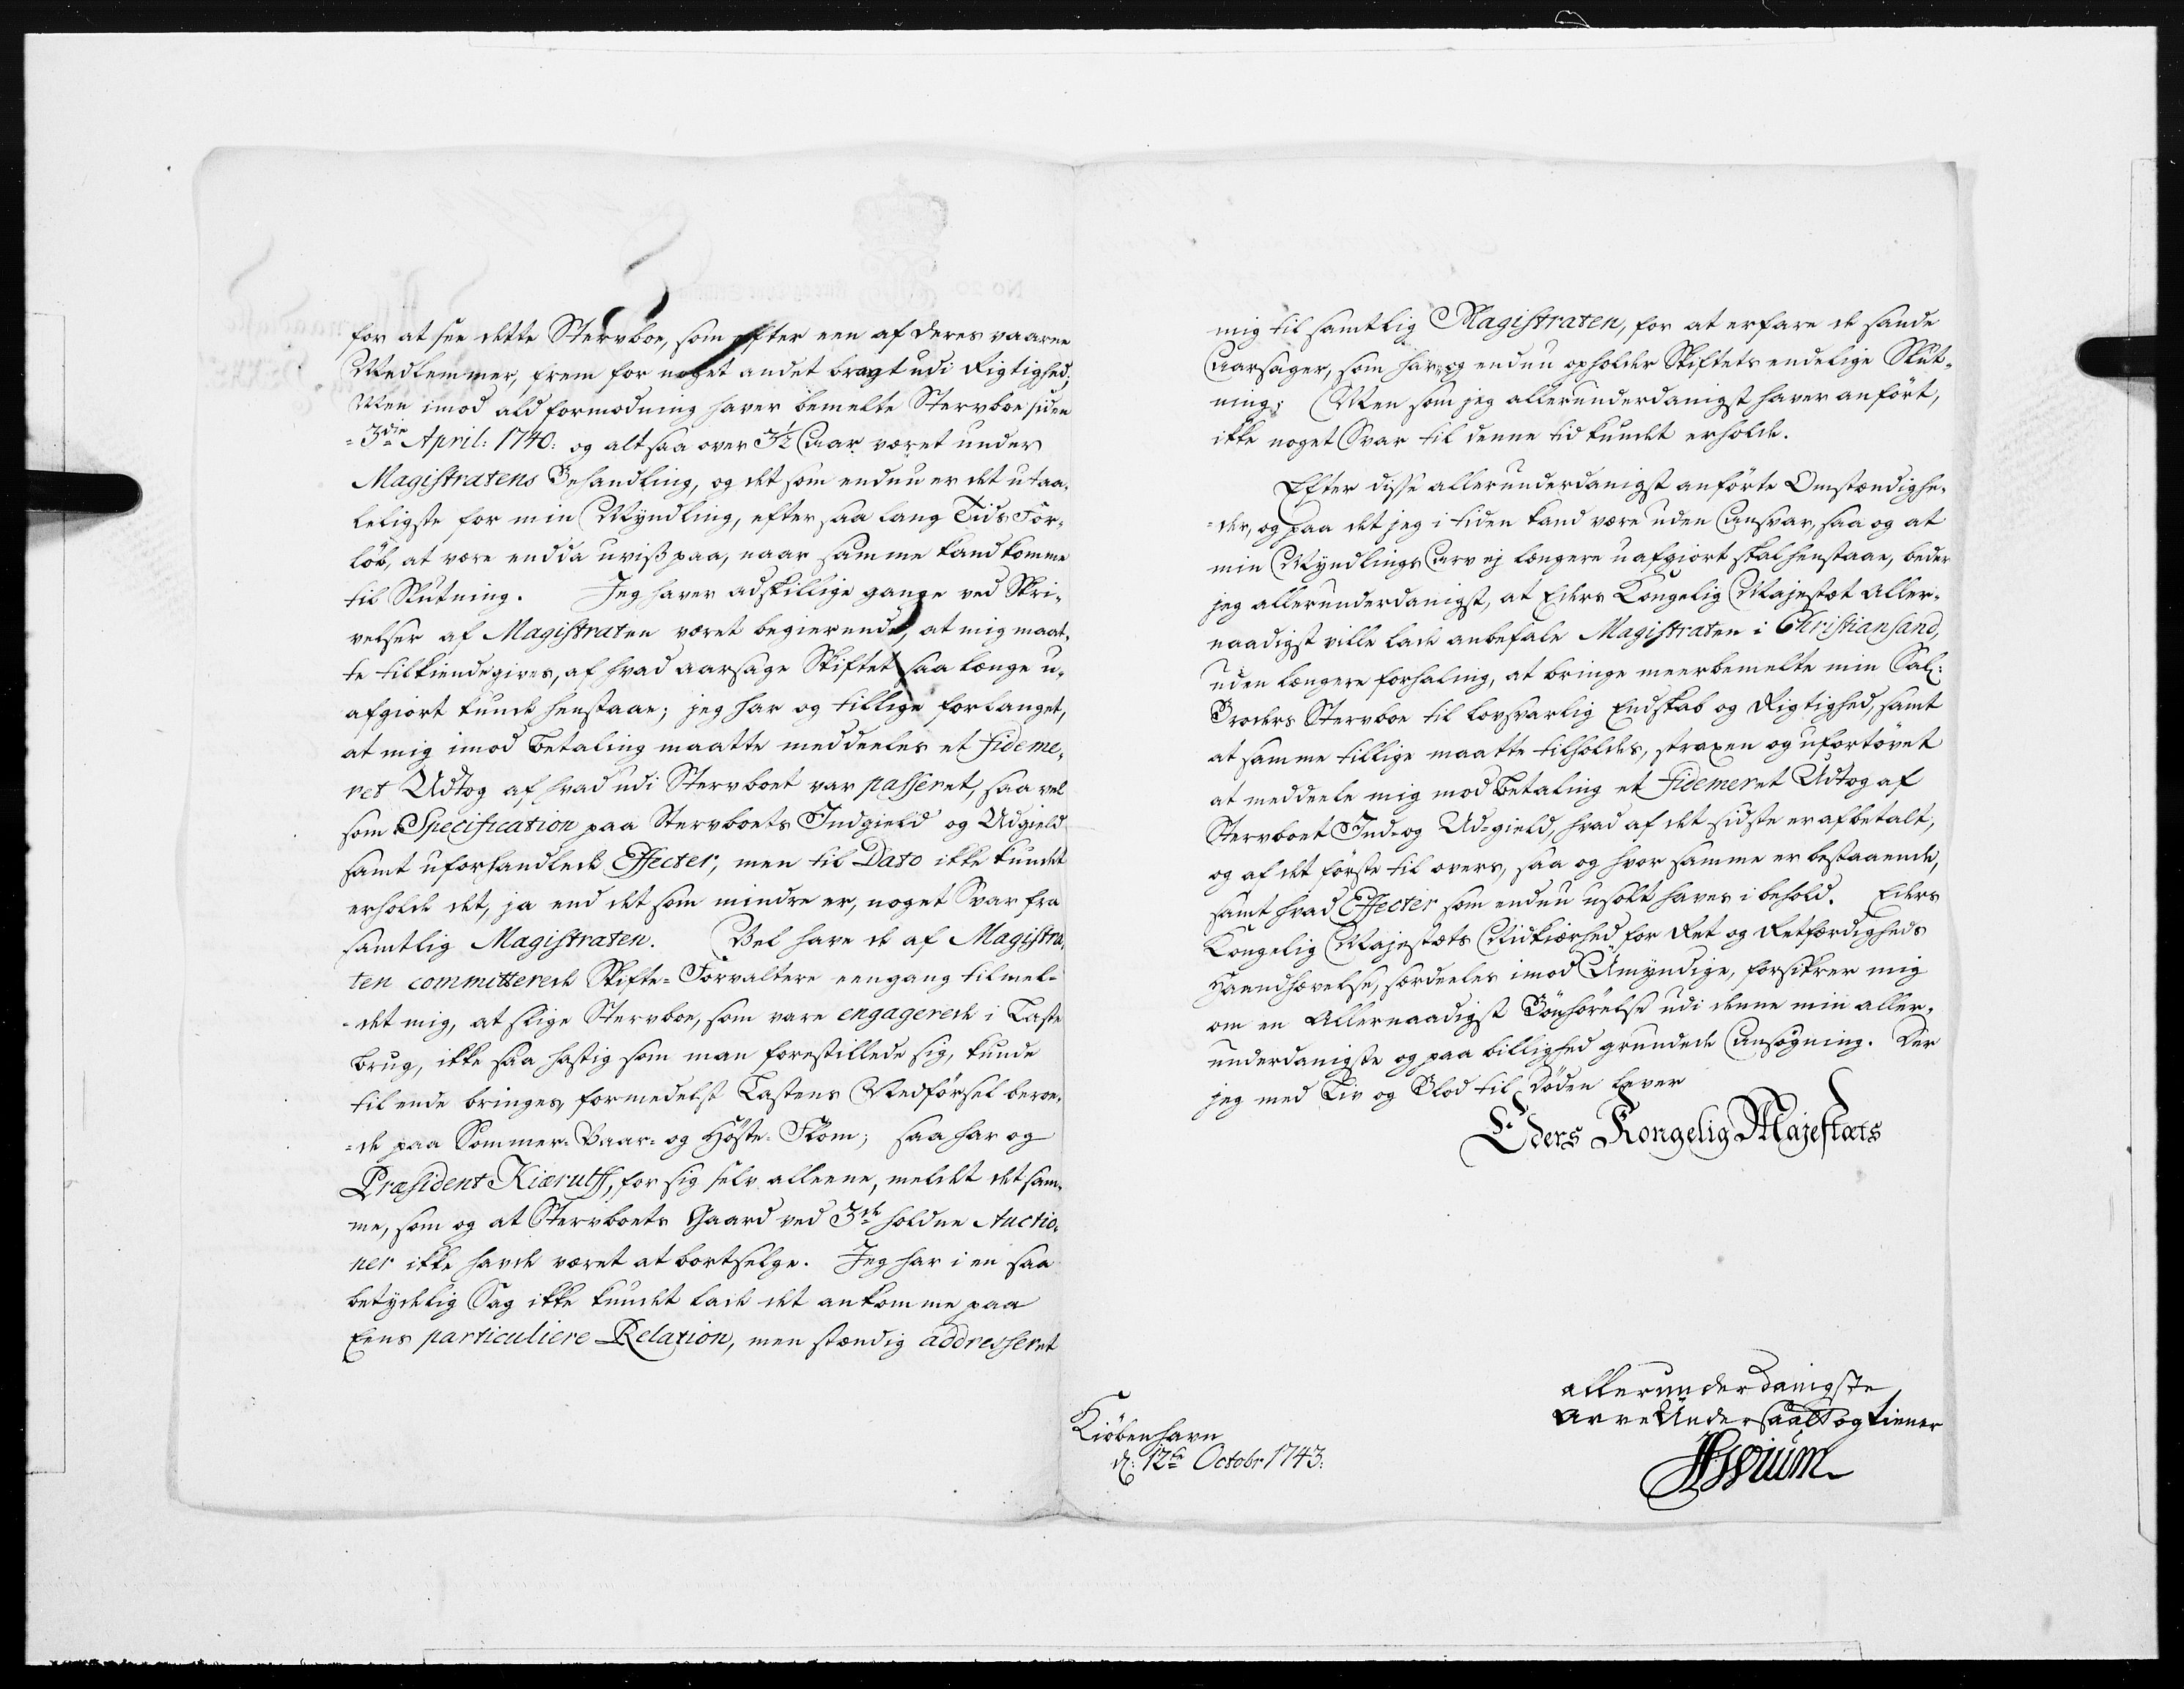 for at see dette Stervboe, som efter een af deres vaaren
Medlemmer, frem for noget andet bragt udi Rigtighed;
Men imod ald formodning haver bemelte Stervboe siden
3die April: 1740: og altsaa over 3½ Aar været under
Magistratens Behandling, og det som endnu er det utaa-
leligste for min Myndling, efter saa lang Tids For-
løb, at være endda uviss paa, naar samme kand komme
til Slutning. Jeg haver adskillige gange ved Skri-
velser af Magistraten været begierende, at mig maat-
te tilkiendegives, af hvad aarsage Skiftet saa længe u-
afgiort kunde henstaae; jeg har og tillige forlanget,
at mig imod Betaling maatte meddeeles et fideme-
ret Udtog af hvad udi Stervboet var passeret, saavel
som Specification paa Stervboets Indgield og Udgield
samt uforhandlede Effecter, men til Dato ikke kundet
erholde det, ja end det som mindre er, noget Svar fra
samtlig Magistraten. Vel have de af Magistra-
ten committerede Skifte-Forvaltere eengang tilmel-
det mig, at slige Stervboe, som vare engagerede i Last
Brug, ikke saa hastig som man forestillede sig, kunde
til ende bringes, formedelst Lastens Nedförsel beroe-
de paa Sommer- Vaar- og Höste-Flom; saa har og
Præsident Kiærulff, for sig selv alleene, meldet det sam-
me, som og at Stervboets Gaard ved 3de holdne Auctio-
ner ikke havde været at bortselge. Jeg har i en saa
betydelig Sag ikke kundet lade det ankomme paa
Eens particuliere Relation, men stændig addresseret
mig til samtlig Magistraten, for at erfare de sande
Aarsager, som har og endnu opholder Skiftets endelige Slut-
ning; Men som jeg allerunderdanigst haver anført,
ikke noget Svar til denne tid kundet erholde.
Efter disse allerunderdanigst anförte Omstændighe-
der, og paa det jeg i tiden kand være uden Ansvar, saa og at
min Myndlings Arv ej længere uafgiort skal henstaae, beder
jeg allerunderdanigst, at Eders Kongelig Majestæt Aller-
naadigst ville lade anbefale Magistraten i Christiansand,
uden længere forhaling, at bringe meerbemelte min Sal:
Broders Stervboe til lovsvarlig Endskab og Rigtighed, samt
at samme tillige maatte tilholdes, straxen og ufortövet
at meddeele mig mod Betaling et Fidemeret Udtog af
Stervboet Ind- og Ud-gield, hvad af det sidste er afbetalt,
og af det förste til overs, saa og hvor samme er bestaaende,
samt hvad Effecter som endnu usolt haves i behold. Eders
Kongelig Majestæts Nidkiærhed for Ret og Retfærdigheds
Haandhævelse, særdeeles imod Umyndige, forsikrer mig
om en Allernaadigst Bönhörelse udi denne min aller-
underdanigste og paa billighed grundede Ansögning. Der
jeg med Liv og Blod til Döden lever
Eders Kongelig Majestæts
allerunderdanigste
arve Undersaatt og tiener
Kiöbenhavn
d: 12te Octobr 1743: